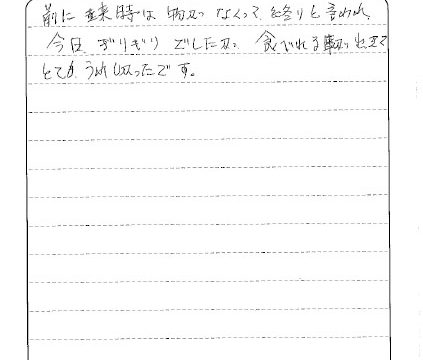 前に来時は物がなくって終りと言われ、
今日ぎりぎりでしたが食べれる事が出来て
とてもうれしかったです。